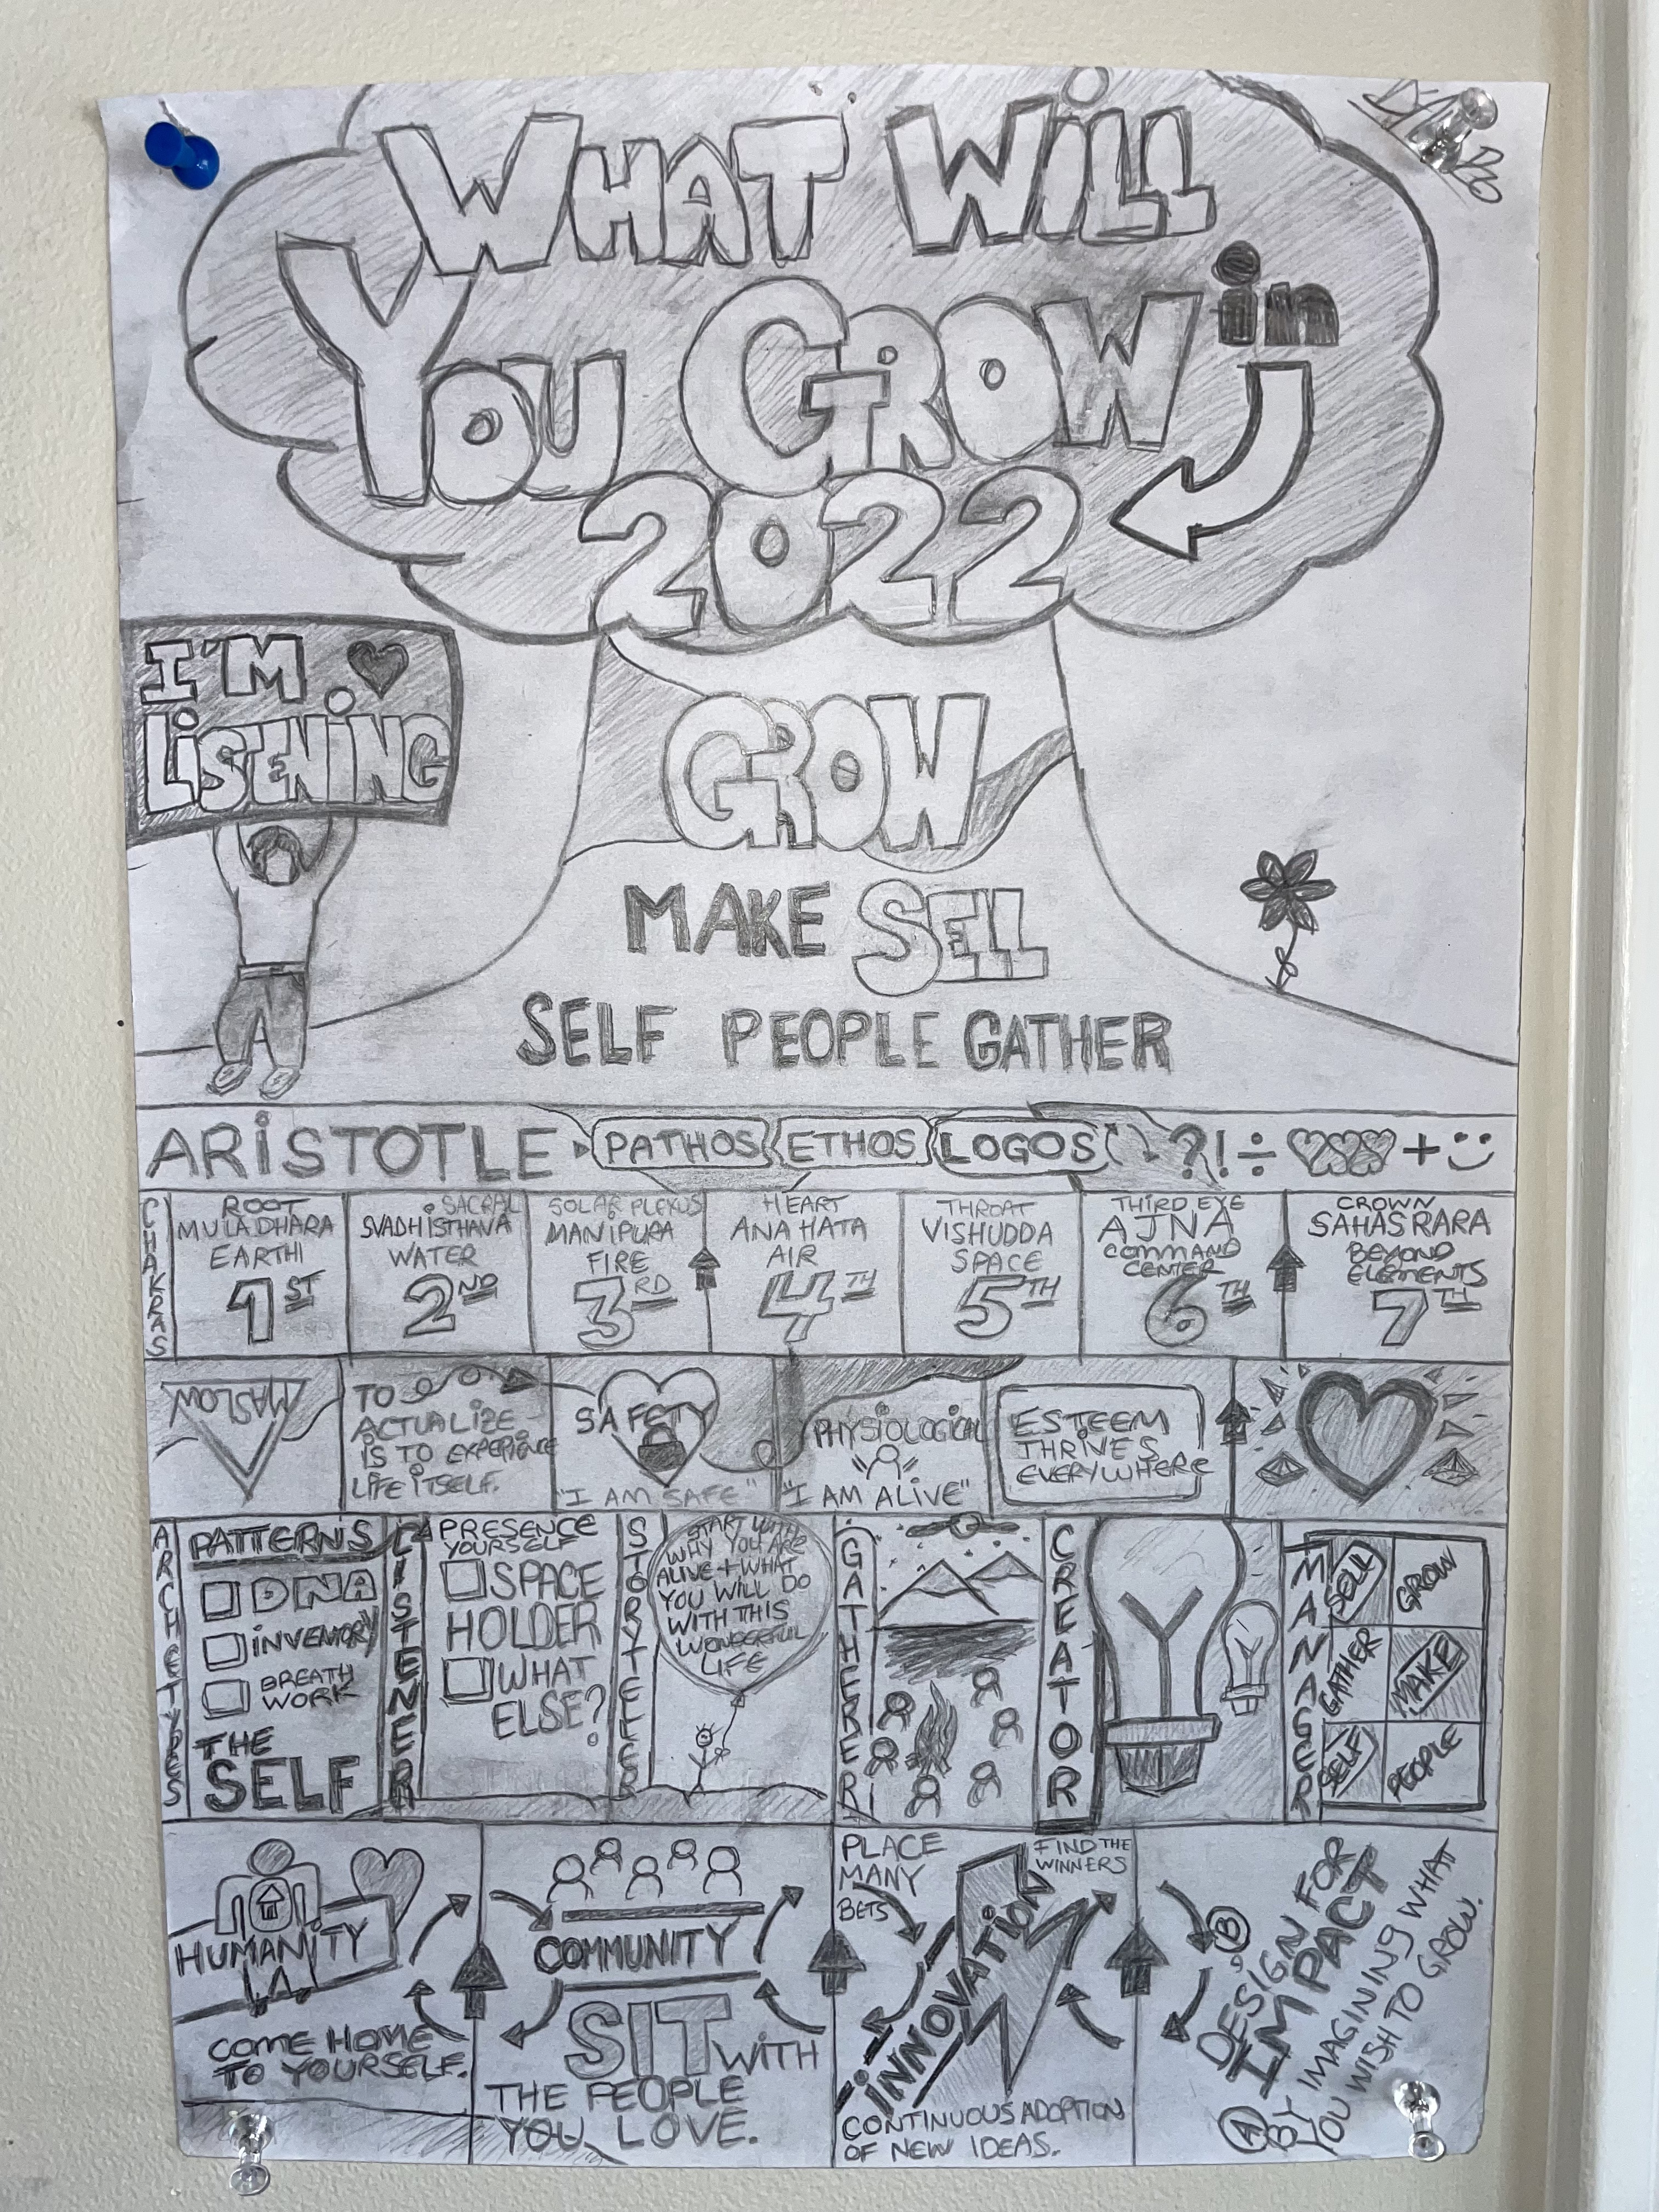 WHAT WILL
YOU GROW in
2022
I'M
LISTENING
GROW
MAKE SELL
SELF PEOPLE GATHER
ARISTOTLE PATHOS ETHOS LOGOS ?!÷ +
CHAKRAS
ROOT
MULADHARA
EARTH
1ST
SACRAL
SVADHISTHAVA
WATER
2ND
SOLAR PLEXUS
MANIPURA
FIRE
3RD
HEART
ANAHATA
AIR
4TH
THROAT
VISHUDDA
SPACE
5TH
THIRD EYE
AJNA
COMMAND
CENTER
6TH
CROWN
SAHASRARA
BEYOND
ELEMENTS
7TH
MASLOW
TO
ACTUALIZE
IS TO EXPERIENCE
LIFE ITSELF.
SAFETY
"I AM SAFE"
PHYSIOLOGICAL
"I AM ALIVE"
ESTEEM
THRIVES
EVERYWHERE
ARCHETYPES
PATTERNS
DNA
INVENTORY
BREATH
WORK
THE
SELF
LISTENER
PRESENCE
YOURSELF
SPACE
HOLDER
WHAT
ELSE?
STORYTELLER
START WITH
WHY YOU ARE
ALIVE + WHAT
YOU WILL DO
WITH THIS
WONDERFUL
LIFE
GATHERER
CREATOR
MANAGER
SELL GROW
GATHER MAKE
SELF PEOPLE
HUMANITY
COME HOME
TO YOURSELF.
COMMUNITY
SIT WITH
THE PEOPLE
YOU LOVE.
PLACE
MANY
BETS
FIND THE
WINNERS
INNOVATION
CONTINUOUS ADOPTION
OF NEW IDEAS.
B
DESIGN FOR
IMPACT
A
BY IMAGINING WHAT
YOU WISH TO GROW.